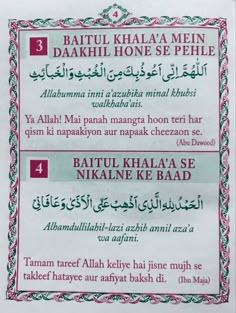 4
3
BAITUL KHALA'A MEIN
DAAKHIL HONE SE PEHLE
اَللّٰهُمَّ اِنِّیْ اَعُوْذُبِكَ مِنَ الْخُبُثِ وَالْخَبَآئِثِ
Allahumma inni a'azubika minal khubsi
walkhaba'ais.
Ya Allah! Mai panah maangta hoon teri har
qism ki napaakiyon aur napaak cheezon se.
(Abu Dawood)
4
BAITUL KHALA'A SE
NIKALNE KE BAAD
اَلْحَمْدُ لِلّٰهِ الَّذِیْ اَذْهَبَ عَنِّی الْاَذٰی وَعَافَانِیْ
Alhamdullilahil-lazi azhib annil aza'a
wa aafani.
Tamam tareef Allah keliye hai jisne mujh se
takleef hatayee aur aafiyat baksh di. (Ibn Maja)